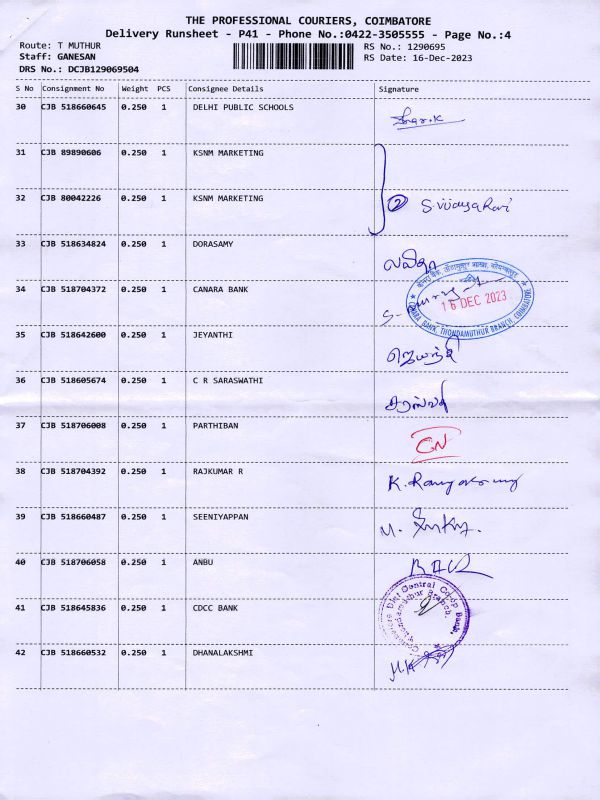 THE PROFESSIONAL COURIERS, COIMBATORE
Delivery Runsheet - P41 - Phone No.:0422-3505555 - Page No.:4
Route: T MUTHUR RS No.: 1290695
Staff: GANESAN RS Date: 16-Dec-2023
DRS No.: DCJB129069504
S No Consignment No Weight PCS Consignee Details Signature
30 CJB 518660645 0.250 1 DELHI PUBLIC SCHOOLS
31 CJB 89890606 0.250 1 KSNM MARKETING
32 CJB 80042226 0.250 1 KSNM MARKETING 2 S.Vijayakani
33 CJB 518634824 0.250 1 DORASAMY
34 CJB 518704372 0.250 1 CANARA BANK 16 DEC 2023
CANARA BANK, THONDAMUTHUR BRANCH, COIMBATORE
35 CJB 518642600 0.250 1 JEYANTHI ஜெயந்தி
36 CJB 518605674 0.250 1 C R SARASWATHI
37 CJB 518706008 0.250 1 PARTHIBAN
38 CJB 518704392 0.250 1 RAJKUMAR R
39 CJB 518660487 0.250 1 SEENIYAPPAN
40 CJB 518706058 0.250 1 ANBU
41 CJB 518645836 0.250 1 CDCC BANK
42 CJB 518660532 0.250 1 DHANALAKSHMI